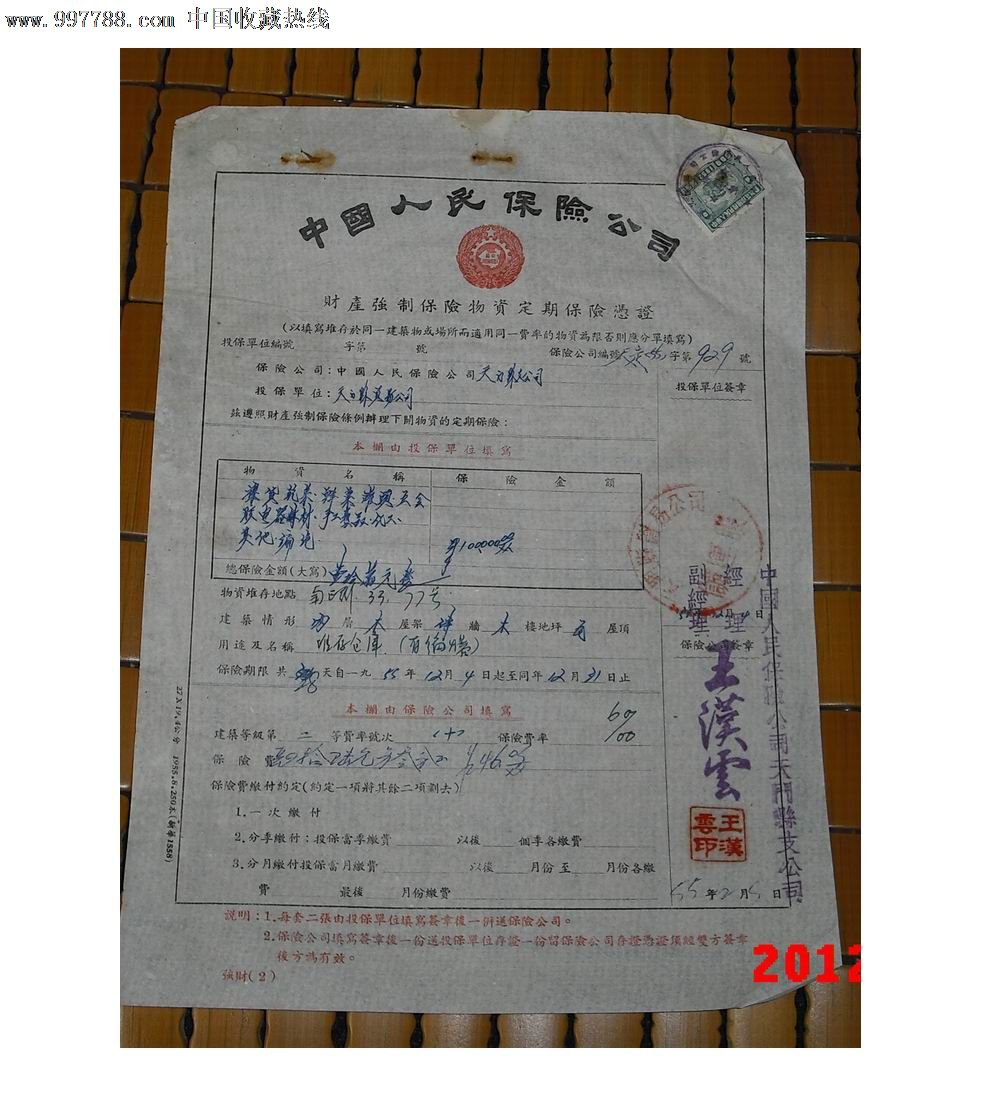 www.997788.com 中国收藏热线
中國人民保險公司
財產強制保險物資定期保險憑證
(以填寫堆存於同一建築物或場所而適用同一費率的物資為限否則應分單填寫)
投保單位編號 字第 號
保險公司編號 字第929號
保險公司:中國人民保險公司天门縣支公司
投保單位簽章
投保單位:天门縣貿易公司
茲遵照財產強制保險條例辦理下開物資的定期保險:
本欄由投保單位填寫
物資名稱 保險金額
總保險金額(大寫)
物資堆存地點 33. 77号
建築情形 層 木 屋架 磚 牆 木 樓地坪 瓦 屋頂
用途及名稱 堆存仓庫
保險公司簽章
保險期限共 天自一九55年12月4日起至同年12月31日止
本欄由保險公司填寫
建築等級第二等費率號次 保險費率
保險費
保險費繳付約定(約定一項將其餘二項劃去)
1.一次繳付
2.分季繳付:投保當季繳費 以後 個季各繳費
3.分月繳付投保當月繳費 以後 月份至 月份各繳
費 最後 月份繳費
副經理
經理
王漢雲
王漢雲印
中國人民保險公司天門縣支公司
55年 月 日
27×19.4公分 1955.8.250本(新華1558)
說明:1.每套二張由投保單位填寫簽章後一併送保險公司。
2.保險公司填寫簽章後一份送投保單位存證一份留保險公司存證憑證須經雙方簽章
後方為有效。
強財(2)
2012